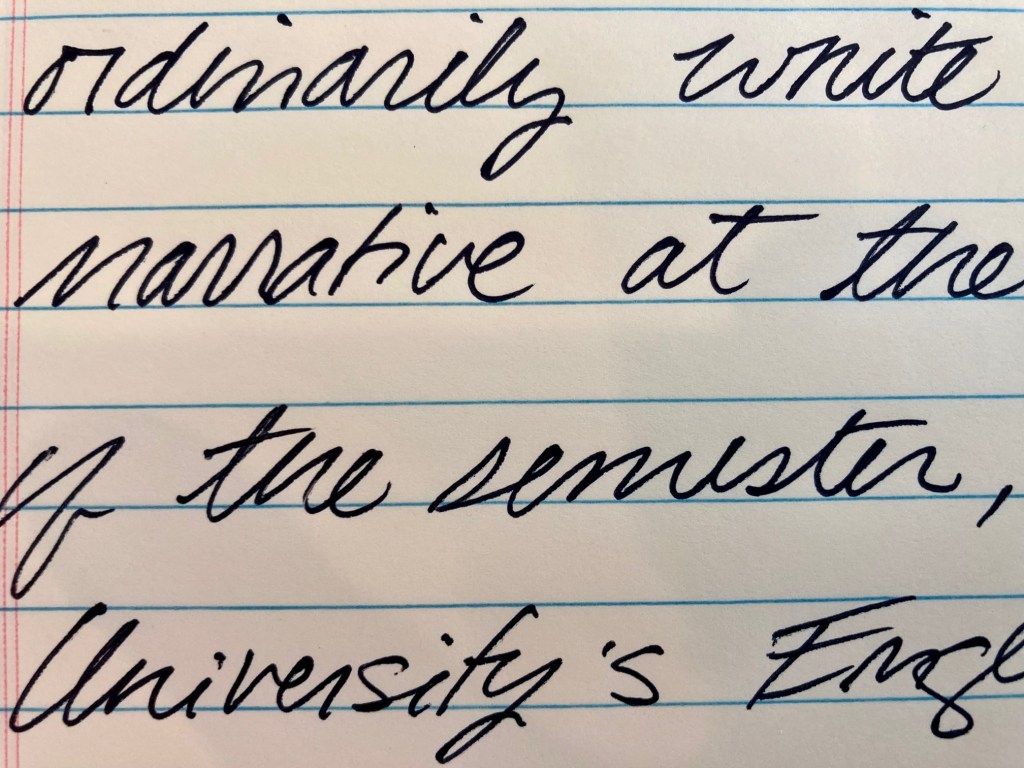 ordinarily write
narrative at the
of the semester,
University's Engl